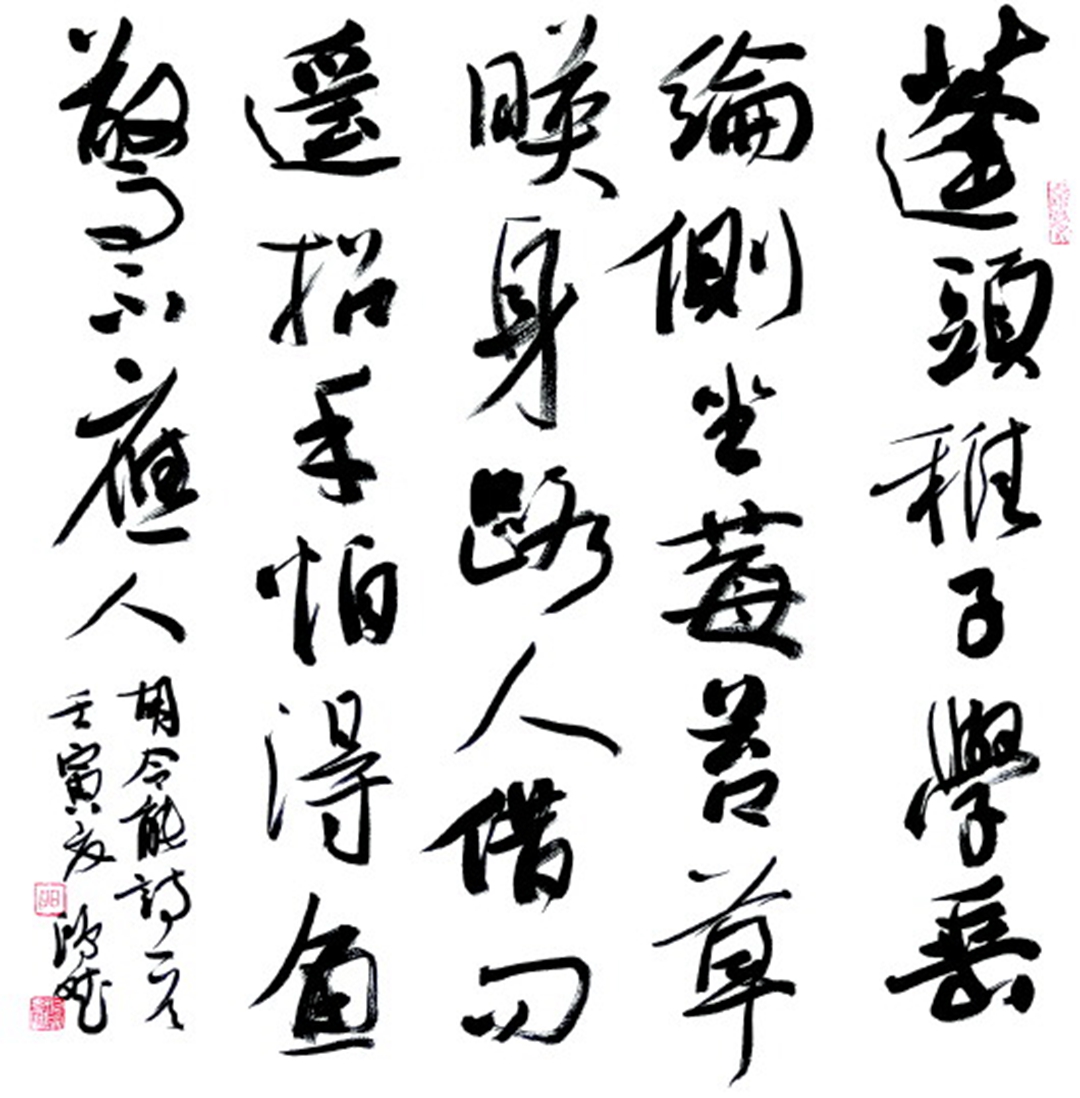 蓬頭稚子學垂
綸側坐莓苔草
暎身路人借問
遙招手怕得魚
驚不應人
胡令能詩一首
壬寅夏